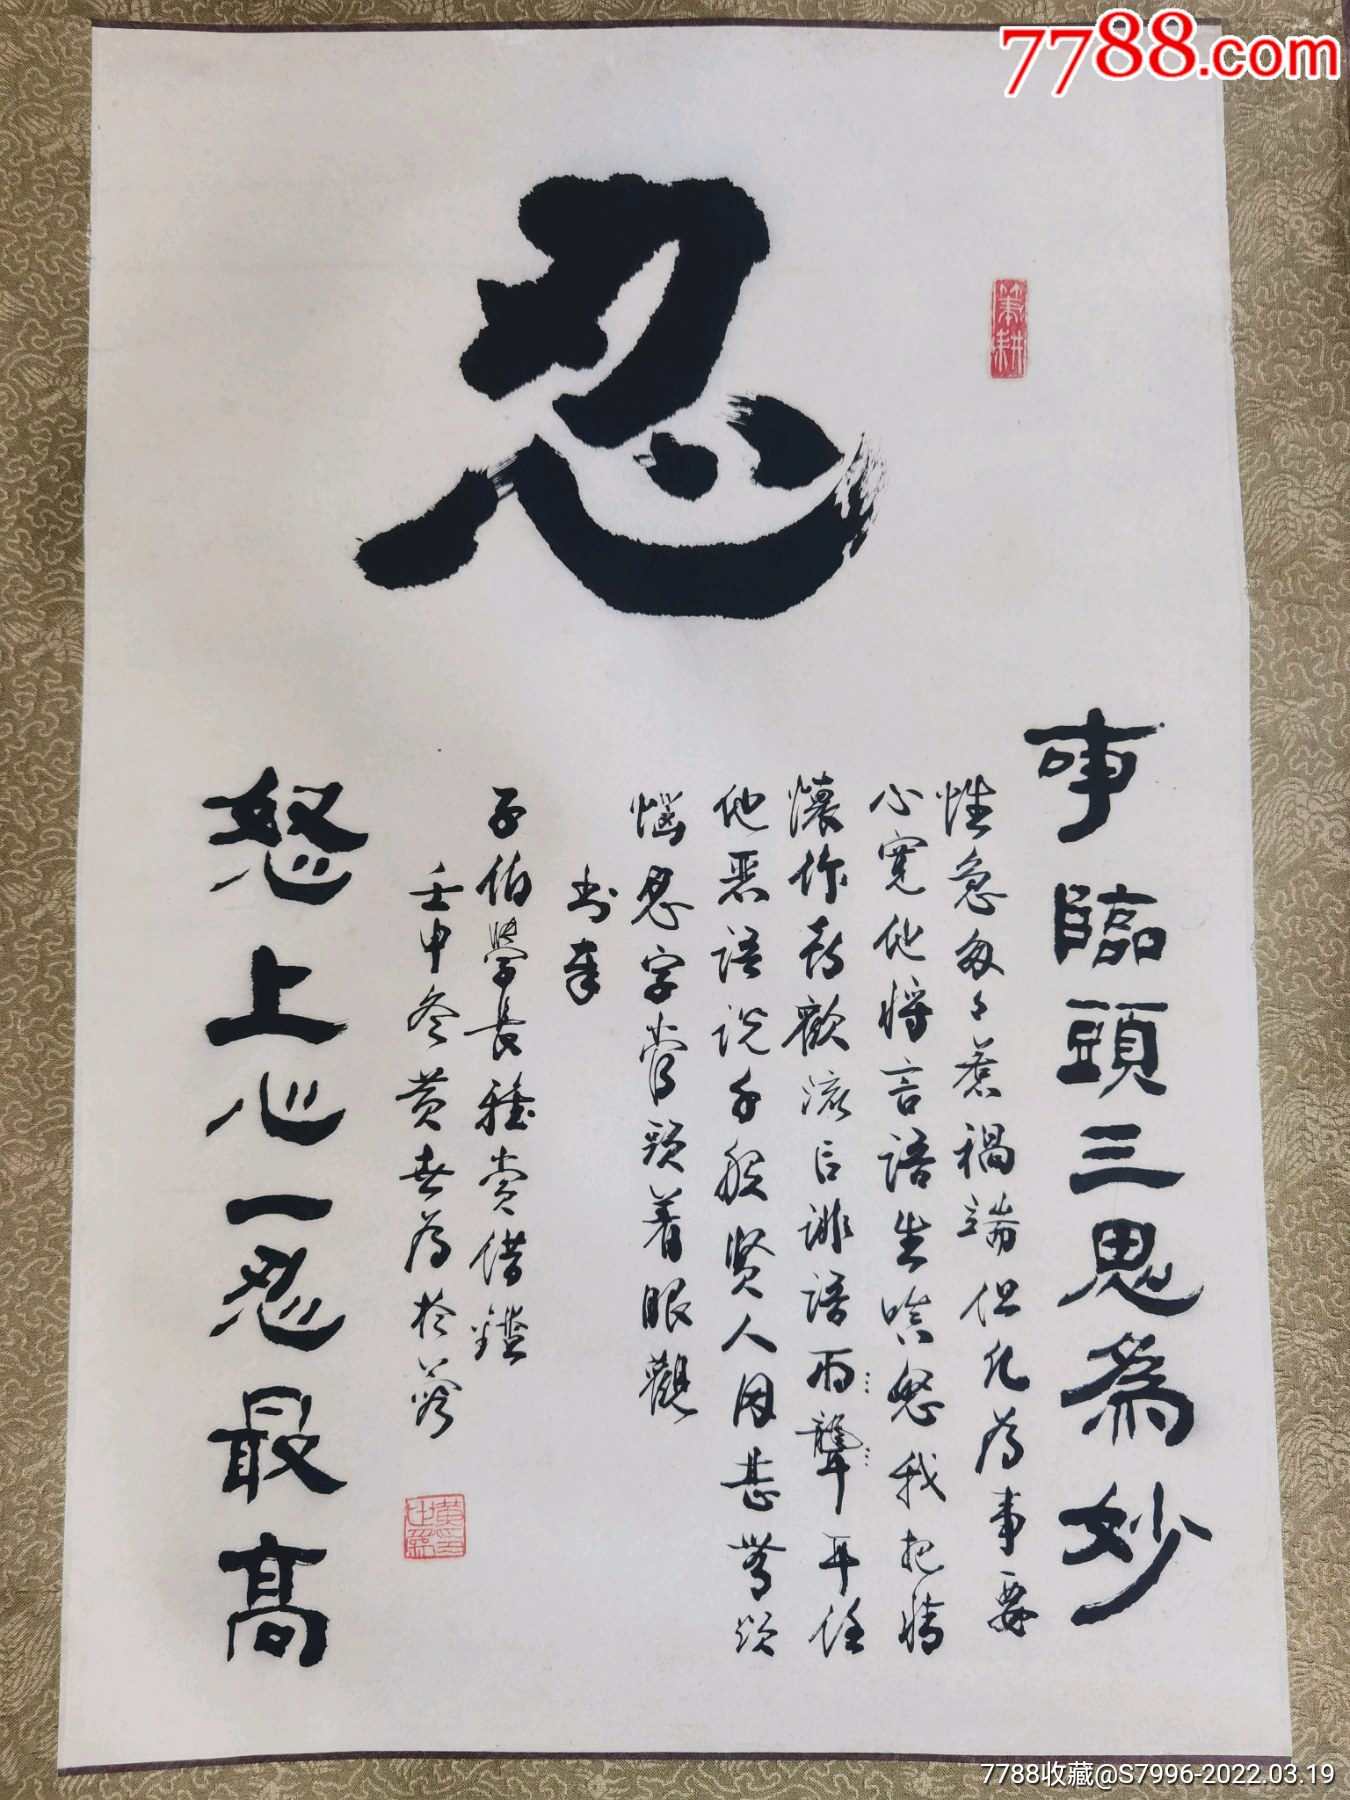 7788.com
忍
筆耕
事臨頭三思為妙
性急每々惹禍端但凡为事要
心寬他將言語生嗔怒我把情
懷作喜歡流言誹語両聾耳任
他惡語說千般賢人因甚無煩
惱忍字常頭着眼觀
书奉
子伯學長雅賞借鑑
壬申冬黄世为於蓉
怒上心一忍最高
7788收藏@S7996-2022.03.19